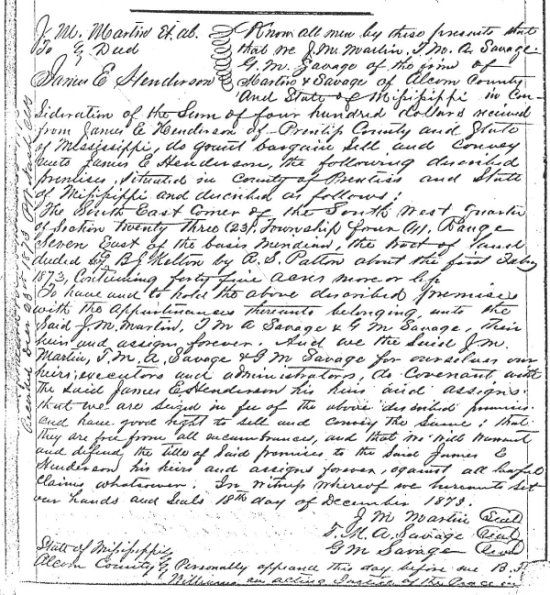 J. M. Martin et. al.
To } Deed
James E Henderson
Know all men by these presents that
that we J. M. Martin, T. M. A. Savage
G. M. Savage of the firm of
Martin & Savage of Alcorn County
And State of Mississippi in con-
sideration of the Sum of four hundred dollars received
from James E Henderson of Prentiss County and State
of Mississippi, do grant bargain Sell and Convey
unto James E Henderson, the following described
premises, Situated in County of Prentiss and State
of Mississippi and described as follows;
The South East Corner of the South West quarter
of Section twenty three (23), Township four (4), Range
Seven East of the basis Meridian, the tract of land
deeded to B. J. Kelton by R. S. Patton about the first July
1873, Containing forty five acres more or less
To have and to hold the above described Premises
with the Appurtinances thereunto belonging, unto the
Said J. M. Martin, T M A Savage & G M Savage, their
heirs and assigns forever. And we the Said J. M.
Martin, T. M. A. Savage & G M Savage for ourselves our
heirs, executors and administrators, do Covenant with
the said James E Henderson his heirs and assigns
that we are Seized in fee of the above described premises
and have good right to sell and convey the Same; that
they are free from all encumbrances, and that we will Warrant
and defend the title of Said premises to the Said James E
Henderson his heirs and assigns forever, against all lawful
claims whatsoever. In Witness Whereof we hereunto set
our hands and Seals 18th day of December 1873.
J M Martin (Seal)
T. M. A. Savage (Seal)
G M Savage (Seal)
State of Mississippi
Alcorn County } Personally appeared this day before me B. F.
Williams an acting Justice of the Peace in
Recorded Dec 23rd 1873